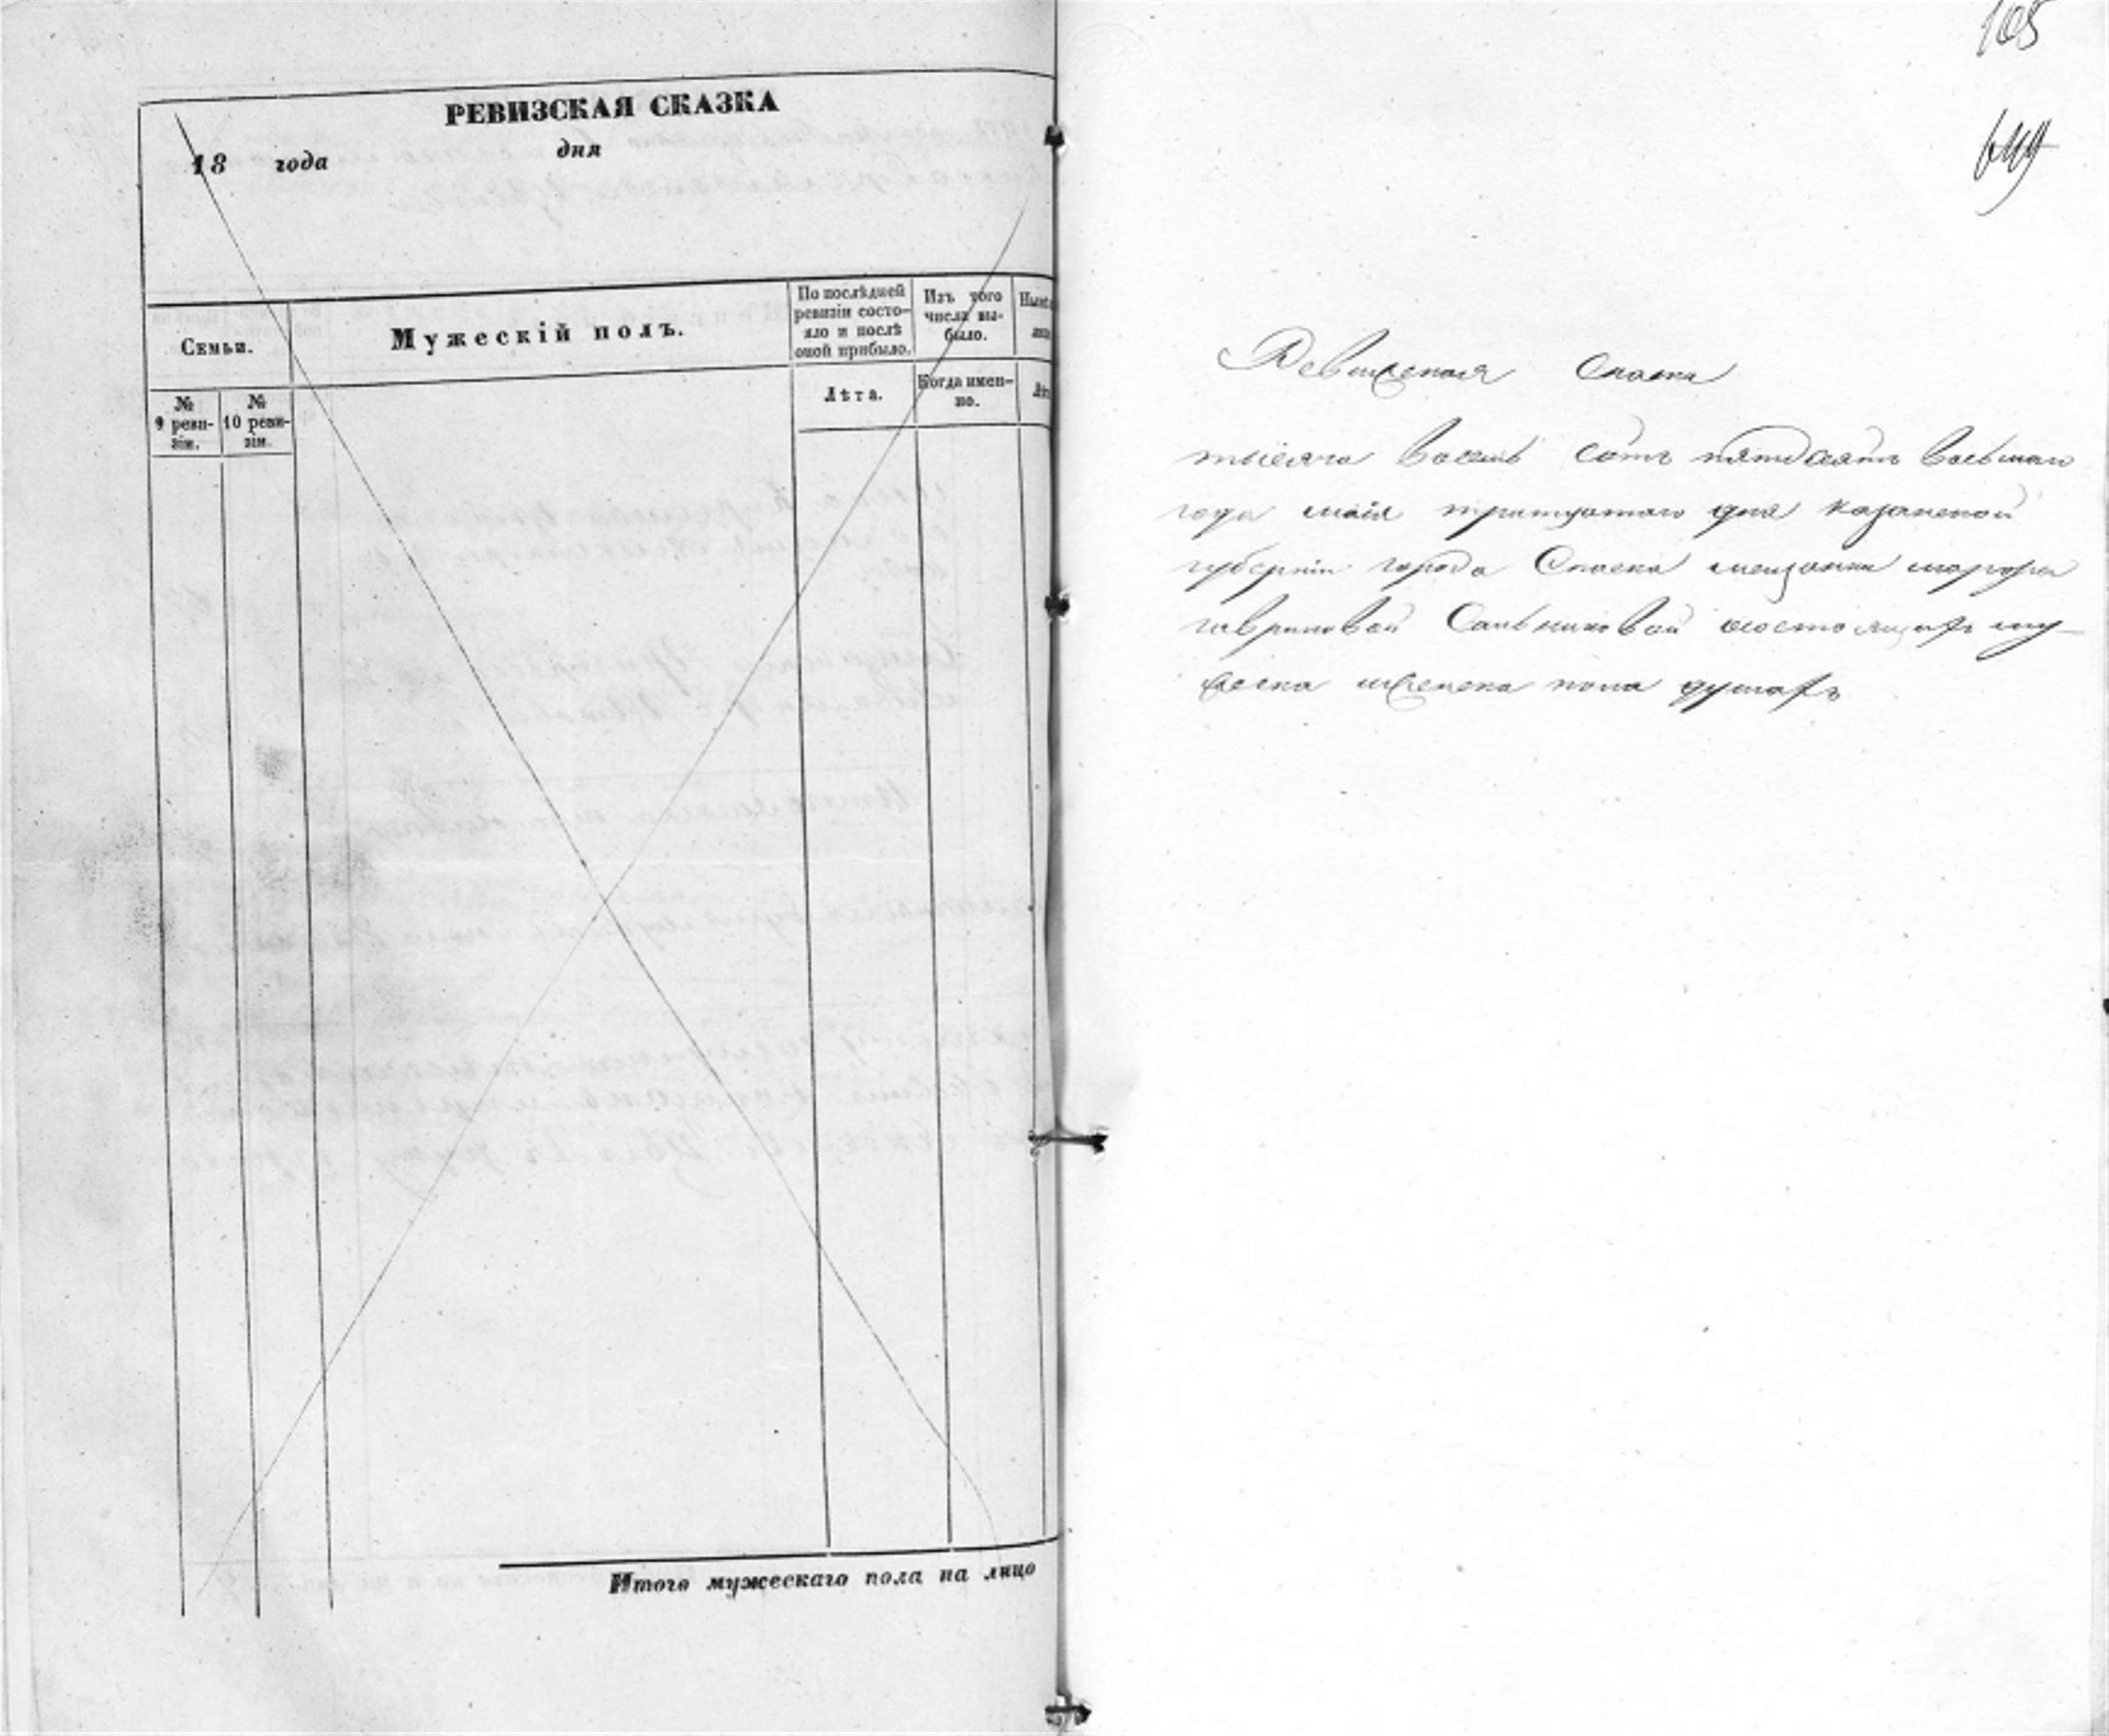 РЕВИЗСКАЯ СКАЗКА
18 года дня
Семьи.
Мужескій полъ.
По послѣдней ревизіи состо-
яло и послѣ
оной прибыло.
Изъ того
числа вы-
было.
№
9 реви-
зіи.
№
10 реви-
зіи.
Лѣта.
Когда имен-
но.
Итого мужескаго пола на лицо
105
649
Ревижская Сказка
тысяча восемь сотъ пятдесятъ восьмаго
года маія тритцатаго дня казанской
губерніи города Спаска мещанки
гавриловой Сальниковой состоящихъ му-
жеска женска пола душахъ